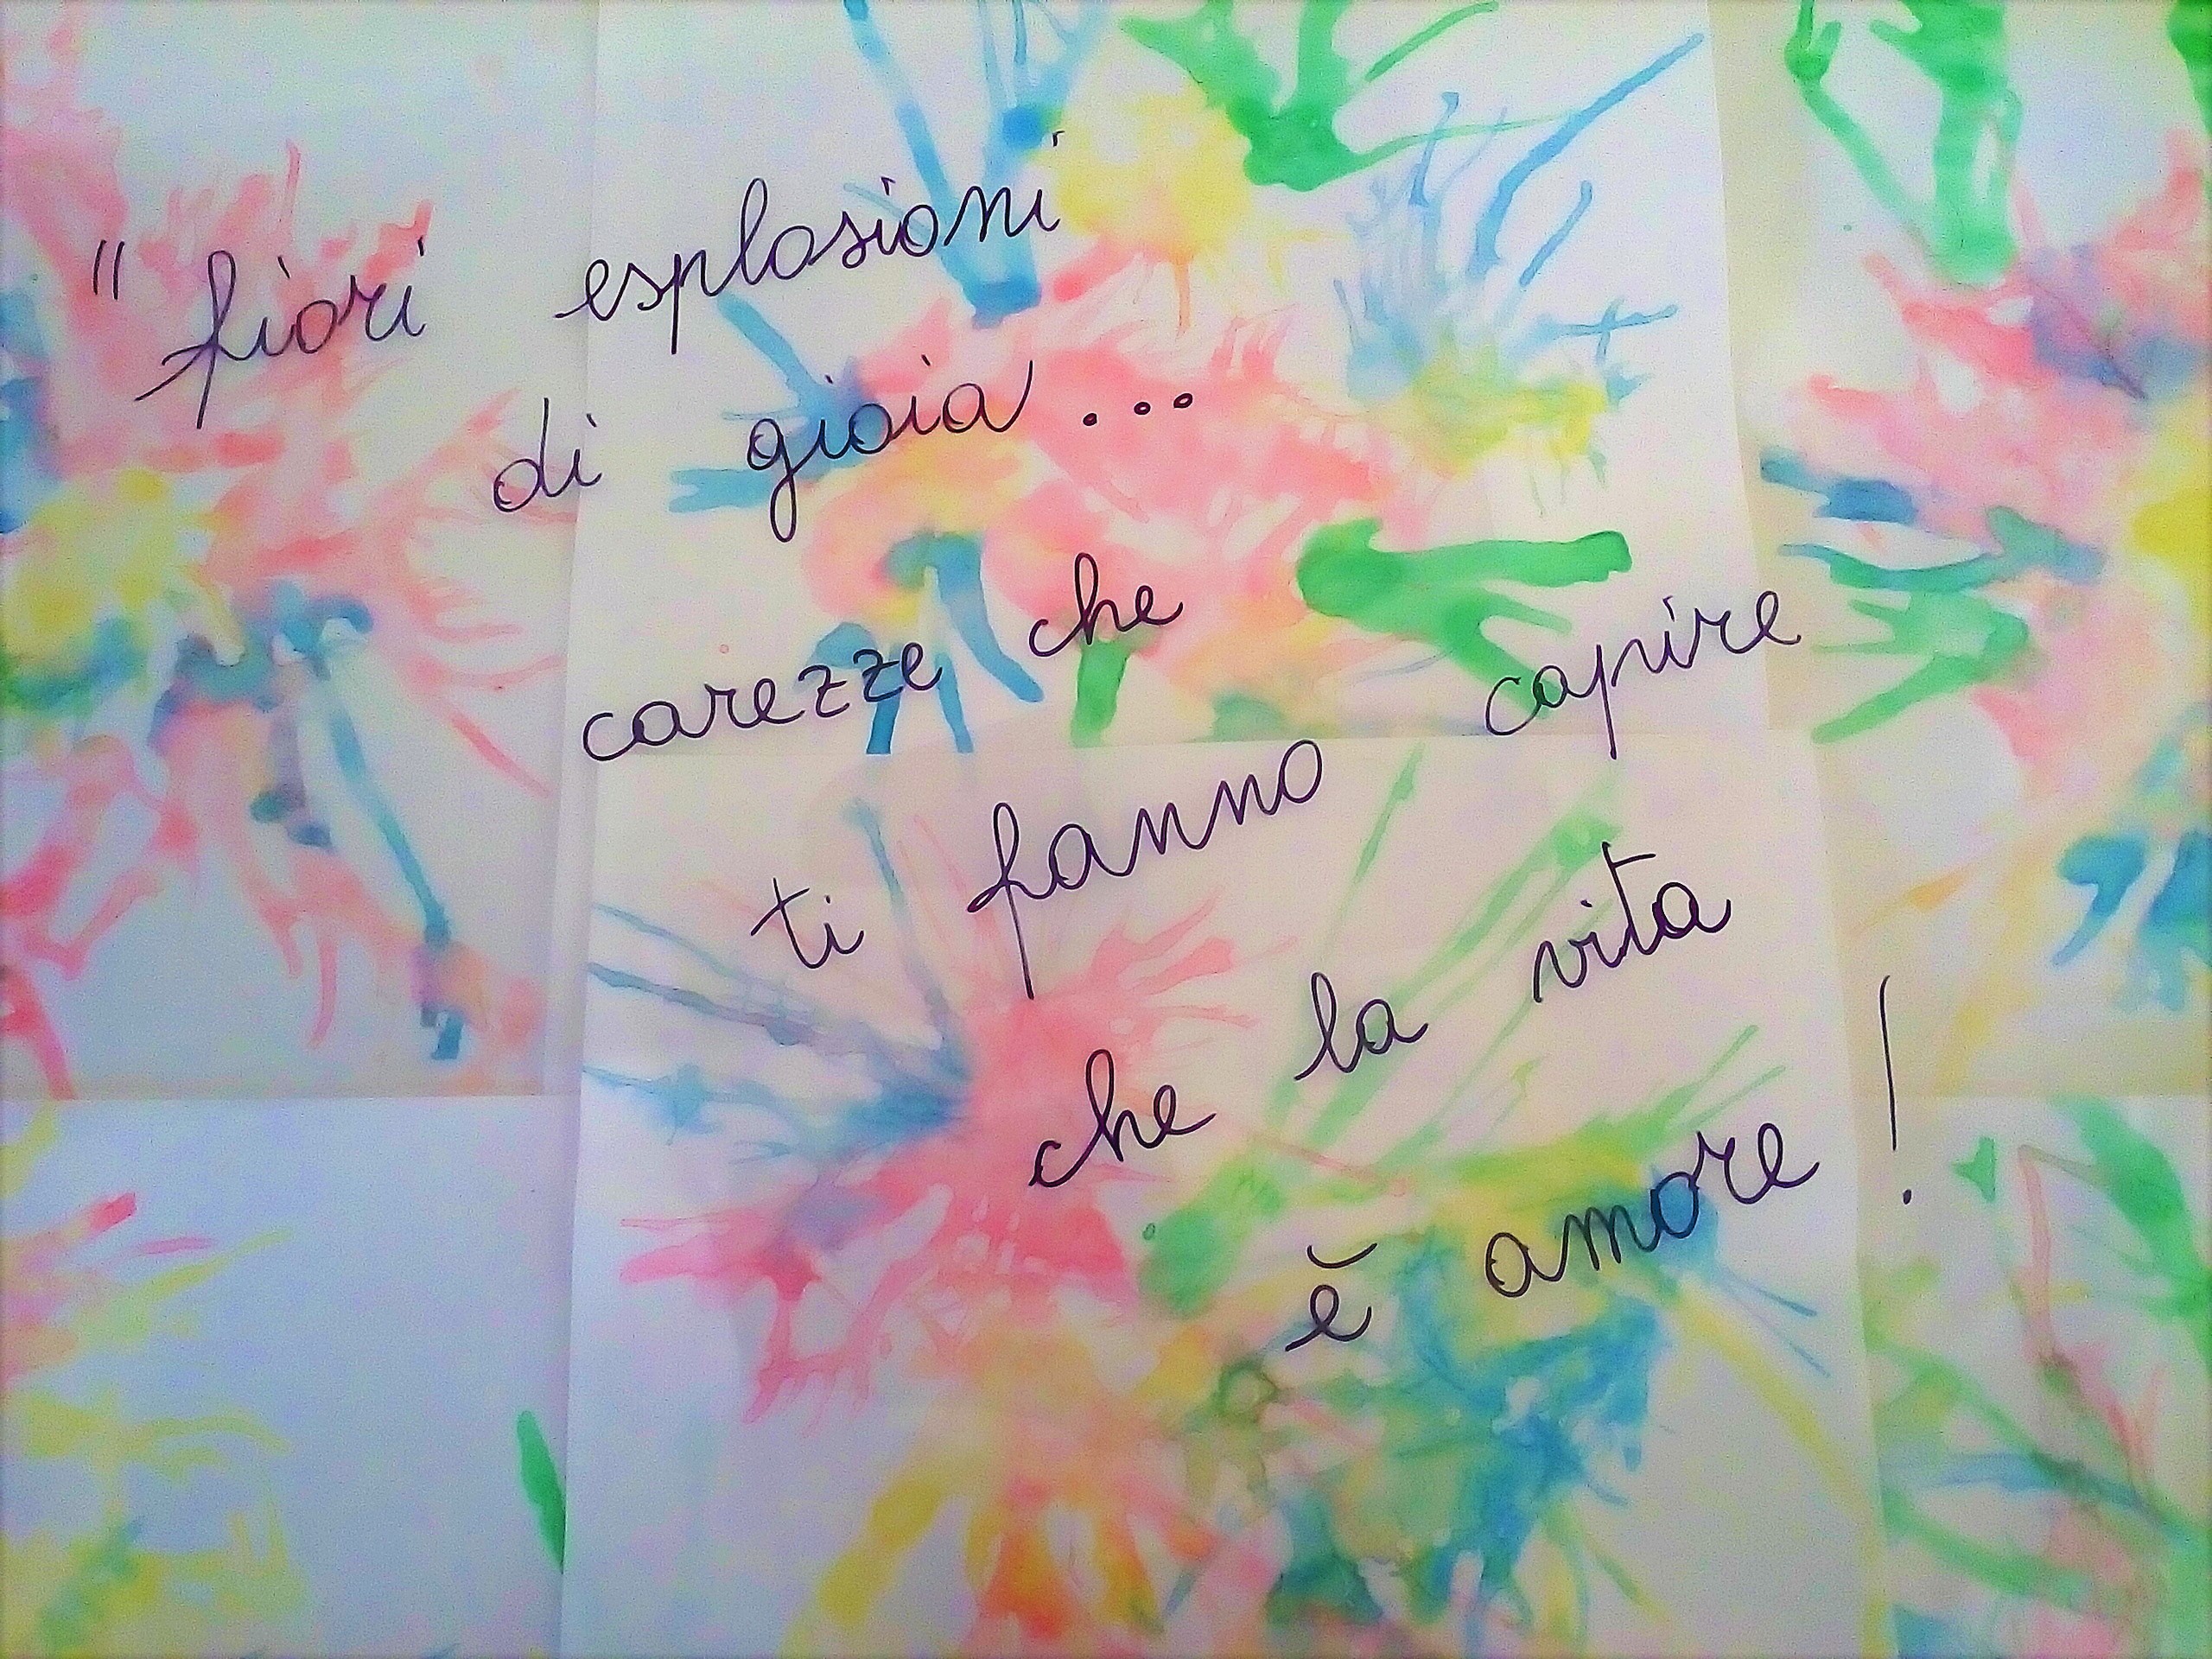 " fiori esplosioni
di gioia...
carezze che
ti fanno capire
che la vita
è amore !